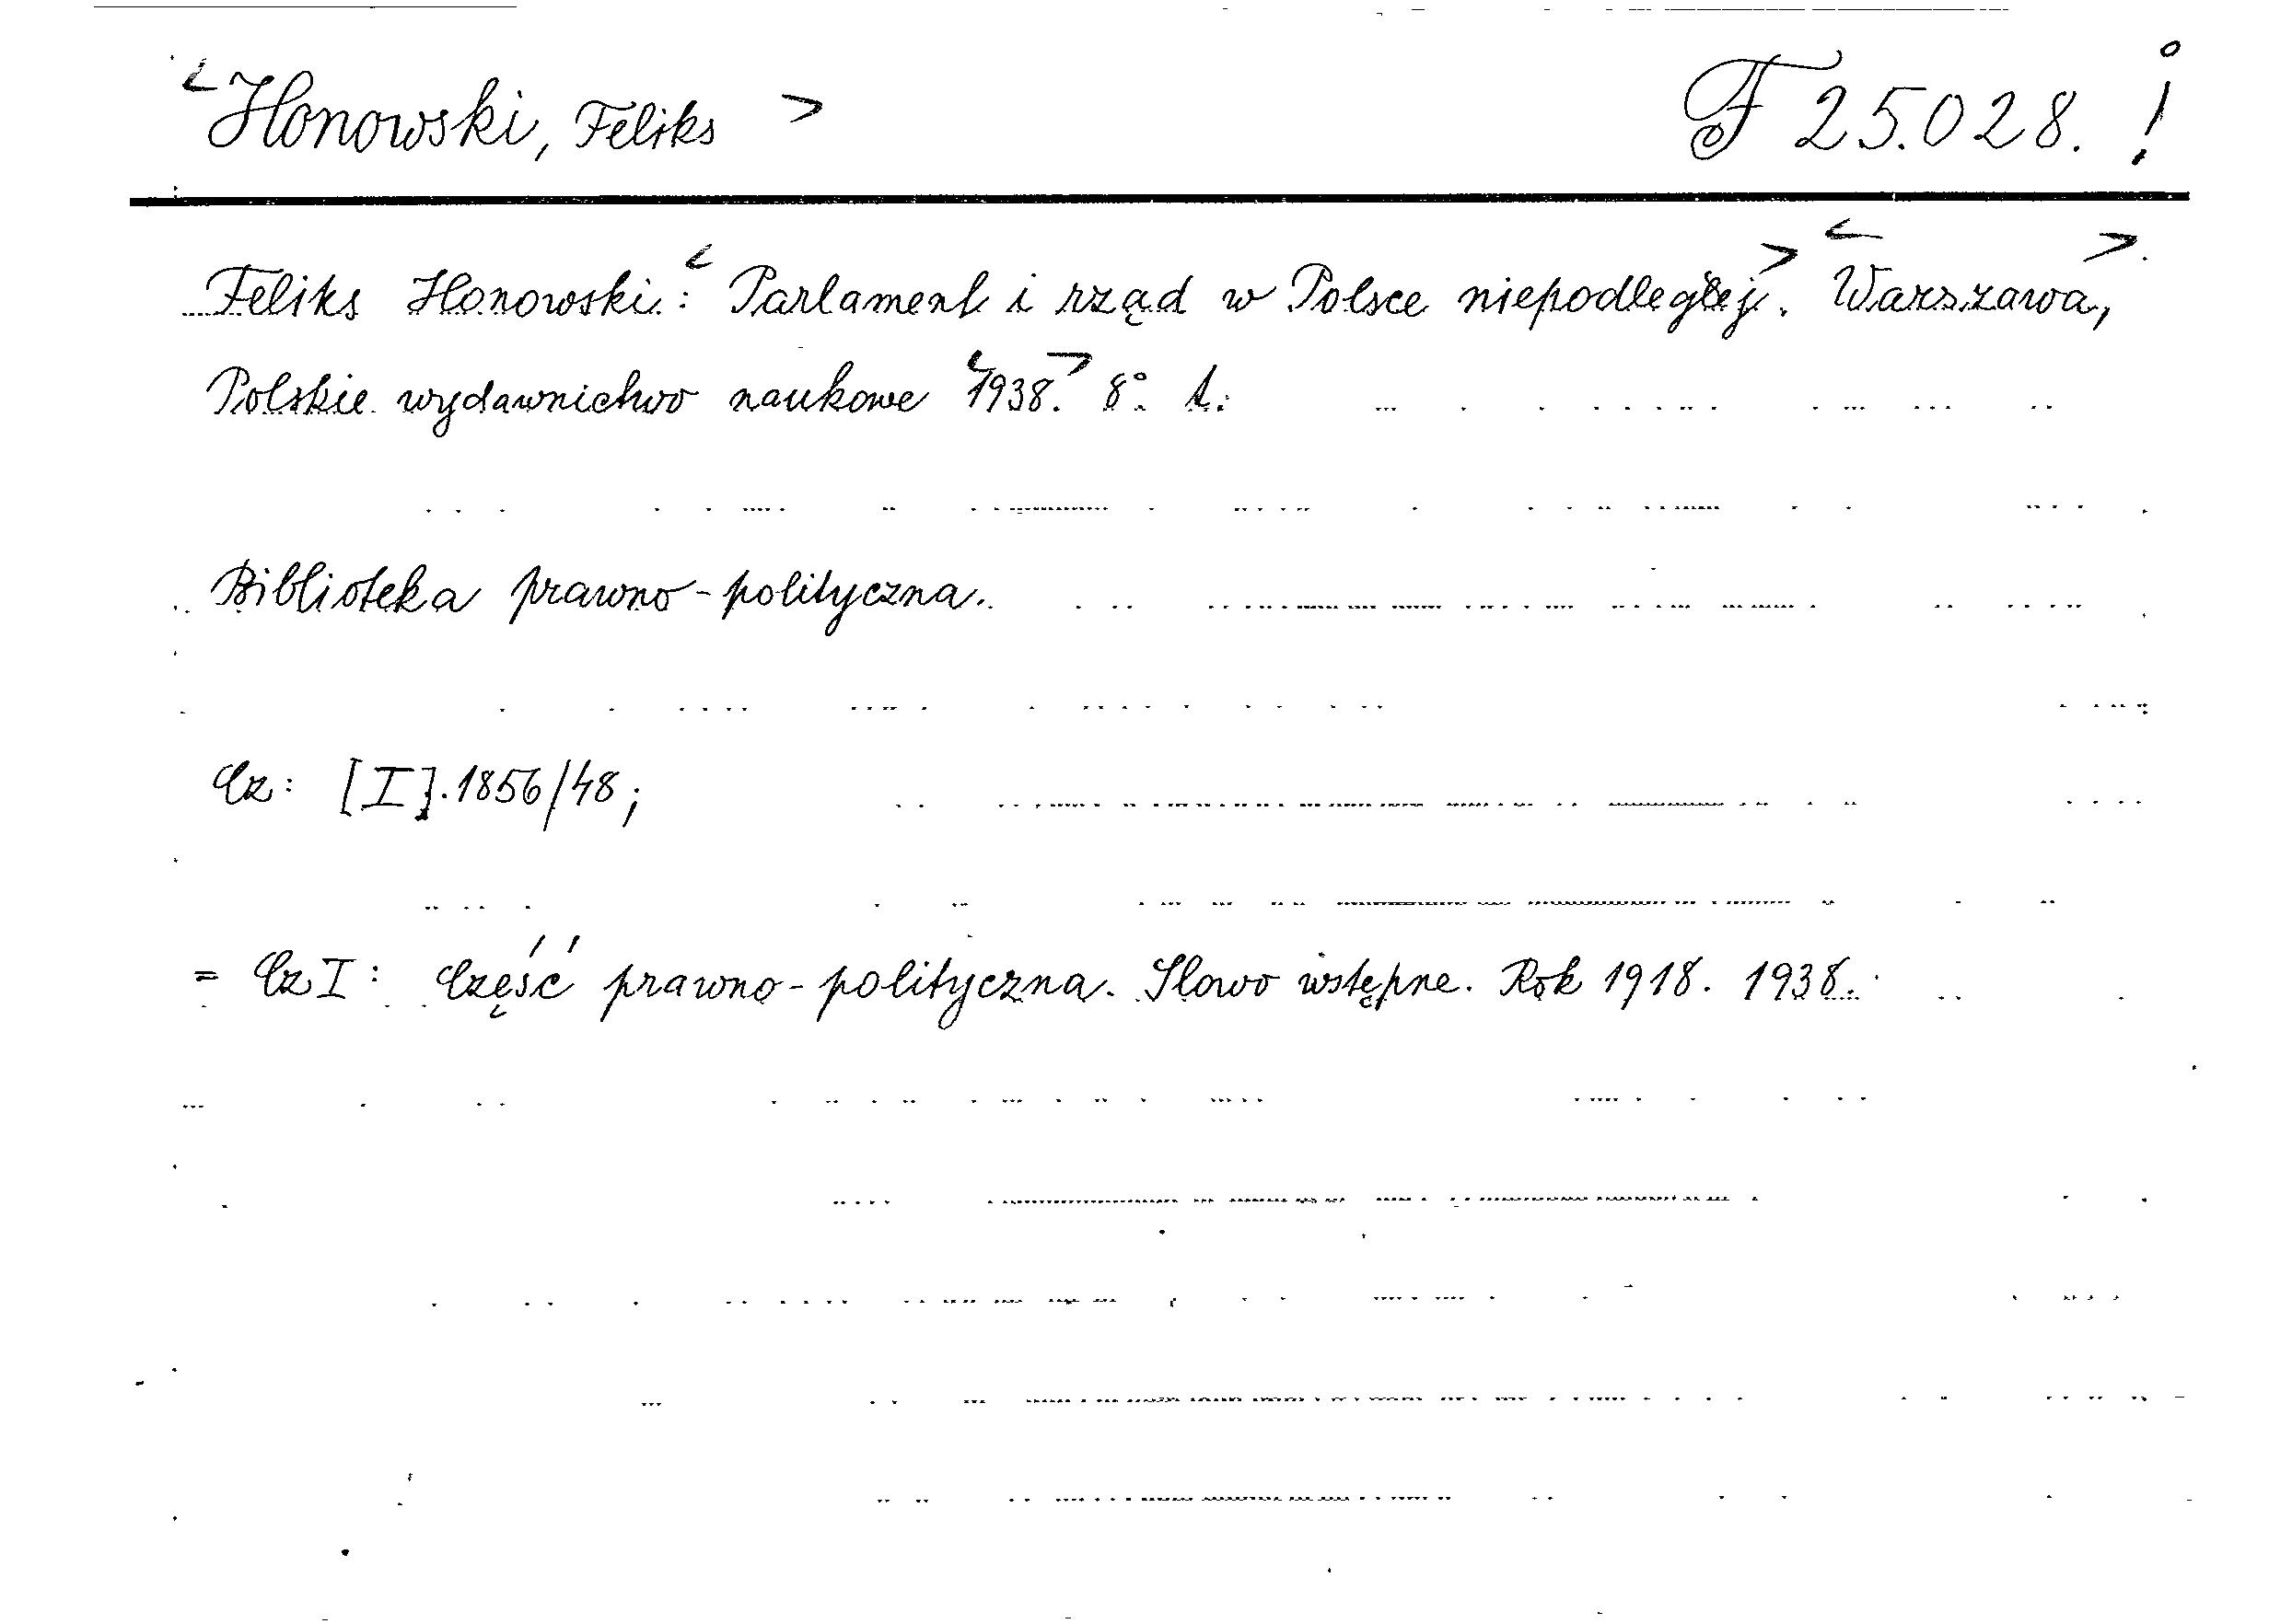 <Honowski, Feliks> F 25.028. !
Feliks Honowski: <Parlament i rząd w Polsce niepodległej>. <Warszawa>,
Polskie wydawnictwo naukowe <1938.> 8°.
Biblioteka prawno-polityczna.
Cz: [I].1856/48;
= Cz I: Część prawno-polityczna. Słowo wstępne. Rok 1918. 1938.